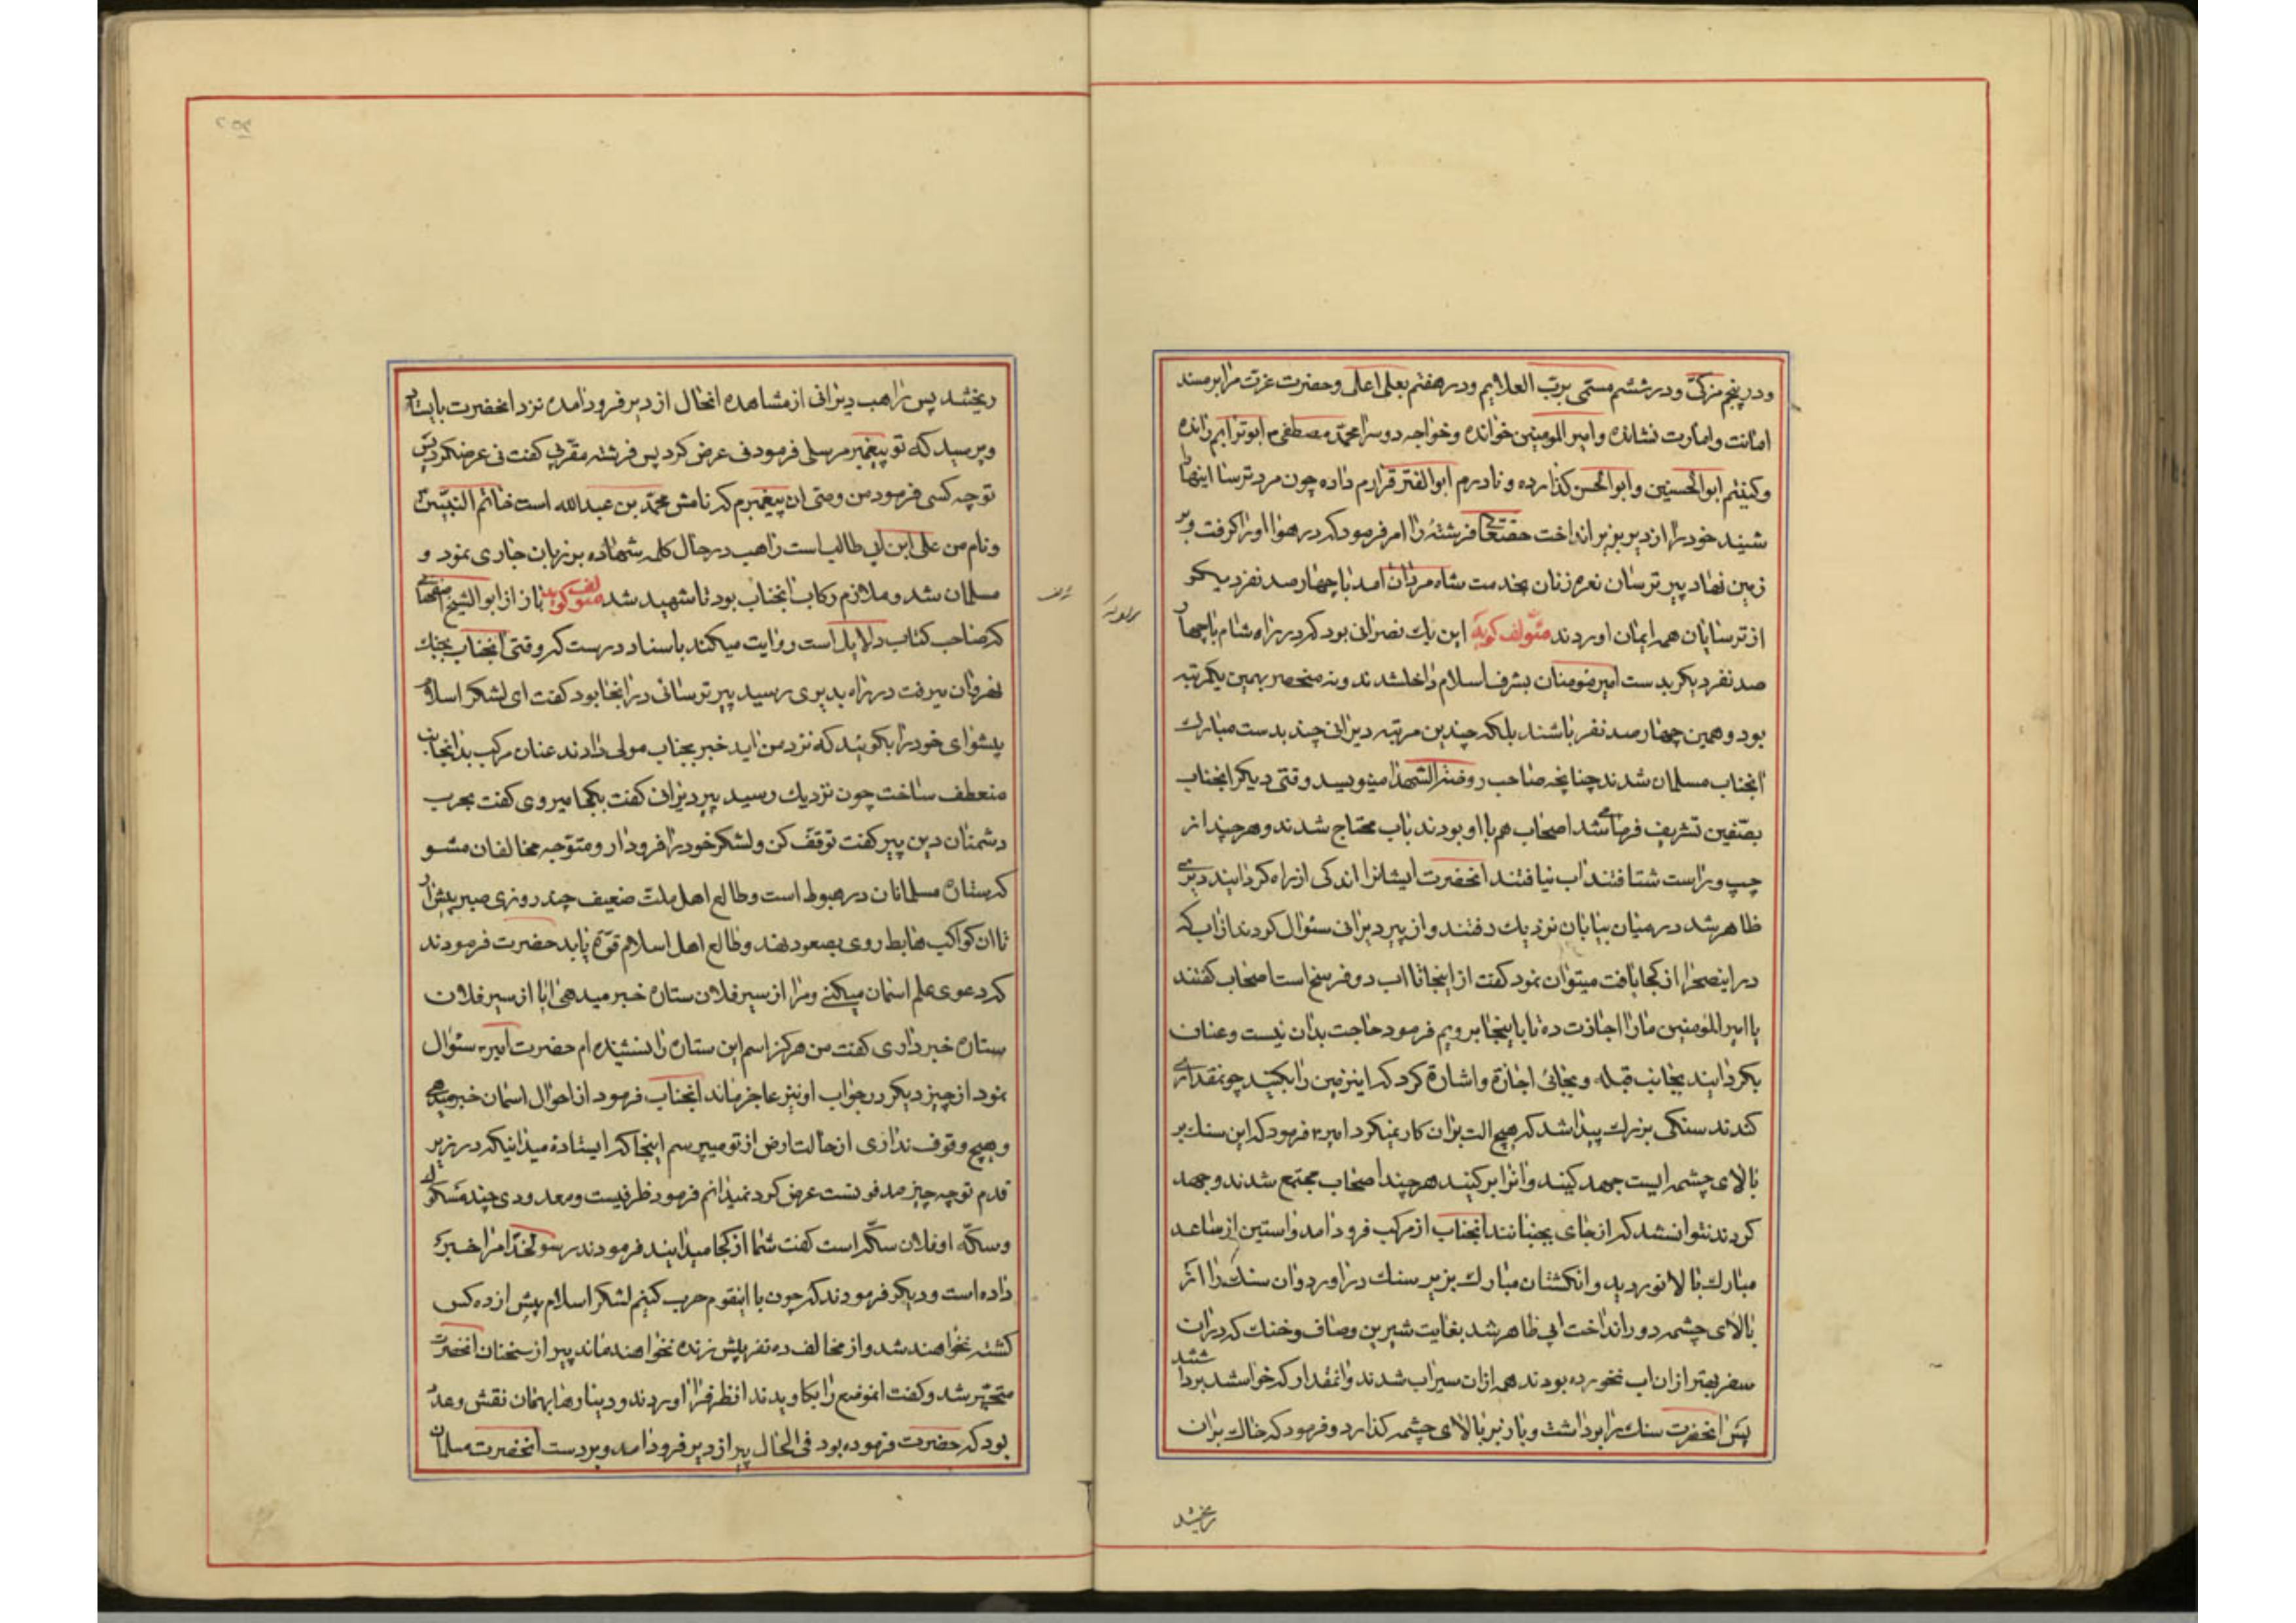 ودر پنجم مزکّی ودر ششم مسمّی بربّ العلایم ودر هفتم بعلی اعلی وحضرت عزت مرا بر مسند
امانت وامارت نشانده وامیر المومنین خوانده وخواجه دوسرا محمّد مصطفی م ابوترابم رانده
وکنیتم ابوالحسنین وابوالحسن کذارده و نادرم ابوالفتر قرارم داده چون مرد ترسا اینها
شنید خود را از دیر بزیر انداخت حقتعالی فرشتهٔ را امر فرمود که در هوا او را کرفت وبر
زمین نهاد پیر ترسان نعره زنان بخدمت شاه مردان امد با چهار صد نفر دیکر
از ترسایان همه ایمان اوردند مؤلف کوید این یک نصرانی بود که در راه شام با چهار
صد نفر دیکر بدست امیر مومنان بشرف اسلام داخل شدند و نه منحصر بهمین یکمرتبه
بود و همین چهار صد نفر باشند بلکه چندین مرتبه دیرانی چند بدست مبارک
انجناب مسلمان شدند چنانچه صاحب روضة الشهدا مینویسد وقتی دیکر انجناب
بصّفین تشریف فرما شد اصحاب هم با او بودند باب محتاج شدند و هر چند از
چپ و راست شتافتند اب نیافتند انحضرت ایشانرا اندکی از راه کردانید دیری
ظاهر شد در میان بیابان نزدیک رفتند و از پیر دیرانی سئوال کردند از اب که
در اینصحرا از کجا یافت میتوان نمود کفت از اینجا تا اب دو فرسخ است اصحاب کفتند
یا امیر المومنین مارا اجازت ده تا باینجا برویم فرمود حاجت بدان نیست وعنان
بکردانید بجانب قبله و بجائی اجازه واشاره کرد که این زمین را بکنید چو نقداری
کندند سنکی بزرک پیدا شد که هیچ الت بران کار نمیکرد امیر۴ فرمود که این سنک بر
بالای چشمه ایست جهد کنید و انرا برکنید هر چند اصحاب مجتمع شدند و جهد
کردند نتوانستند که از جای بجنبانند انجناب از مرکب فرود امد و استین از ساعد
مبارک بالا نوردید و انکشتان مبارک بزیر سنک دراورد و ان سنک را از
بالای چشمه دور انداخت ابی ظاهر شد بغایت شیرین وصاف وخنک که در ان
سفر بهتر از ان اب نخورده بودند همه ازان سیراب شدند وانمقدار که خواستند برداشتند
پس انحضرت سنک را برداشت و باز بر بالای چشمه کذارد و فرمود که خاک بران
ریخشد
ریخشد پس راهب دیرانی از مشاهده انحال از دیر فرود امده نزد انحضرت بایستاد
وپرسید که تو پیغمبر مرسلی فرمود نی عرض کرد پس فرشته مقربی کفت نی عرض کرد پس
تو چه کسی فرمود من وصی ان پیغمبرم که نامش محمّد بن عبدالله است خاتم النبیّین
ونام من علی ابن ابی طالب است راهب در حال کلمه شهاده بر زبان جاری نمود و
مسلمان شد و ملازم رکاب انجناب بود تا شهید شد مؤلف کوید باز از ابوالشیخ اصفهانی
که صاحب کتاب دلایل است روایت میکند باسناد درست که وقتی انجناب بجنک
نهروان میرفت در راه بدیری رسید پیر ترسائی در انجا بود کفت ای لشکر اسلام
پیشوای خود را بکوئید که نزد من اید خبر بجناب مولی دادند عنان مرکب بدانجانب
منعطف ساخت چون نزدیک رسید پیر دیران کفت بکجا میروی کفت بحرب
دشمنان دین پیر کفت توقف کن و لشکر خود را فرود ار و متوّجه مخالفان مشو
که ستاره مسلمانان در هبوط است وطالع اهل ملت ضعیف چند روزی صبر پیش ار
تا ان کواکب هابط روی بصعود نهند وطالع اهل اسلام قوّة یابد حضرت فرمودند
که دعوی علم اسمان میکنی ومرا از سیر فلان ستاره خبر میدهی ایا از سیر فلان
ستاره خبر داری کفت من هرکز اسم این ستاره را نشنیده ام حضرت امیر سئوال
نمود از چیز دیکر در جواب او نیز عاجز ماند انجناب فرمود از احوال اسمان خبر میدهی
وهیچ وقوف نداری از حالت ارض از تو میپرسم اینجا که ایستاده میدانیکه در زیر
قدم تو چه چیز مدفونست عرض کرد نمیدانم فرمود ظرفیست ومعدودی چند مسکوک
وسکّه او فلان سکّه است کفت شما از کجا میدانید فرمودند رسولخدا مرا خبر
داده است و دیکر فرمودند که چون با اینقوم حرب کنیم لشکر اسلام پیش از ده کس
کشته نخواهند شد و از مخالف ده نفر پیش زنده نخواهند ماند پیر از سخنان انحضرت
متحیّر شد و کفت انموضع را بکاویدند ان ظرف را اوردند و دینارها بهمان نقش وعدد
بود که حضرت فرموده بود فی الحال پیر از دیر فرود امد و بر دست انحضرت مسلمان